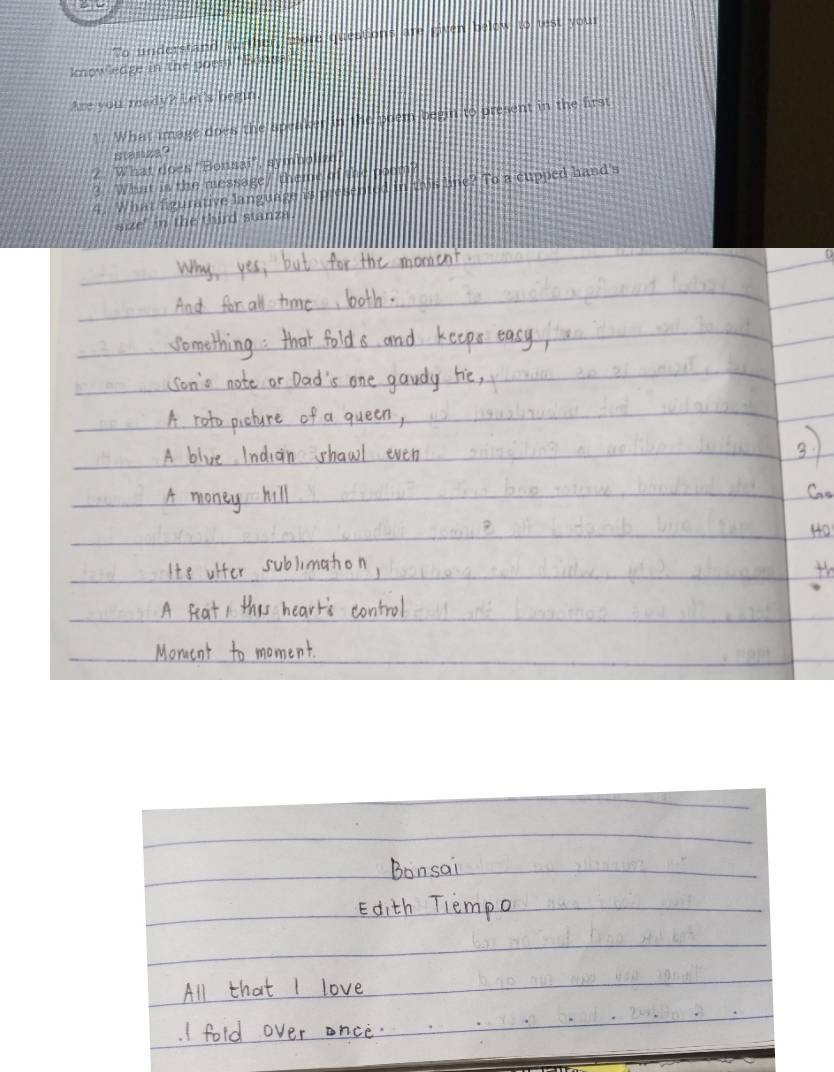 To understand further, more questions are given below to test your
knowledge in the poem "Bonsai"
Are you ready? Let's begin.
1. What image does the speaker in the poem begin to present in the first
stanza?
2. What does "Bonsai" symbolize?
3. What is the message/ theme of the poem?
4. What figurative language is presented in this line? To a cupped hand's
size" in the third stanza.
Why, yes, but for the moment
And for all time, both.
Something that folds and keeps easy,
Son's note or Dad's one gaudy tie,
A roto picture of a queen,
A blue Indian shawl even
A money hill
3.)
Its utter sublimation,
A feat, this heart's control
Moment to moment.
Bonsai
Edith Tiempo
All that I love
I fold over once.